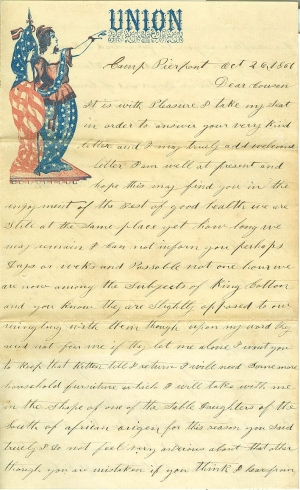 UNION
Camp Pierpont Oct 26, 1861
Dear Cousin
It is with Pleasure I take my seat
in order to answer your very kind
letter and I may truely add welcome
letter I am well at present and
hope this may find you in the
enjoyment of the best of good health we are
Still at the same place yet how long we
may remain I can not inform you perhaps
Days or weeks and Possable not one hour we
are now among the Subjects of King Cotton
and you know they are Slightly opposed to our
mingling with them though upon my word they
need not fear me if they let me alone I want you
to keep that Kitten till I return I will need Some more
household furniture which I will take with me
in the Shape of one of the Sable Daughters of the
South of african origen for this reason you said
truely I do not feel very about that
though you are mistaken if you think I hear from